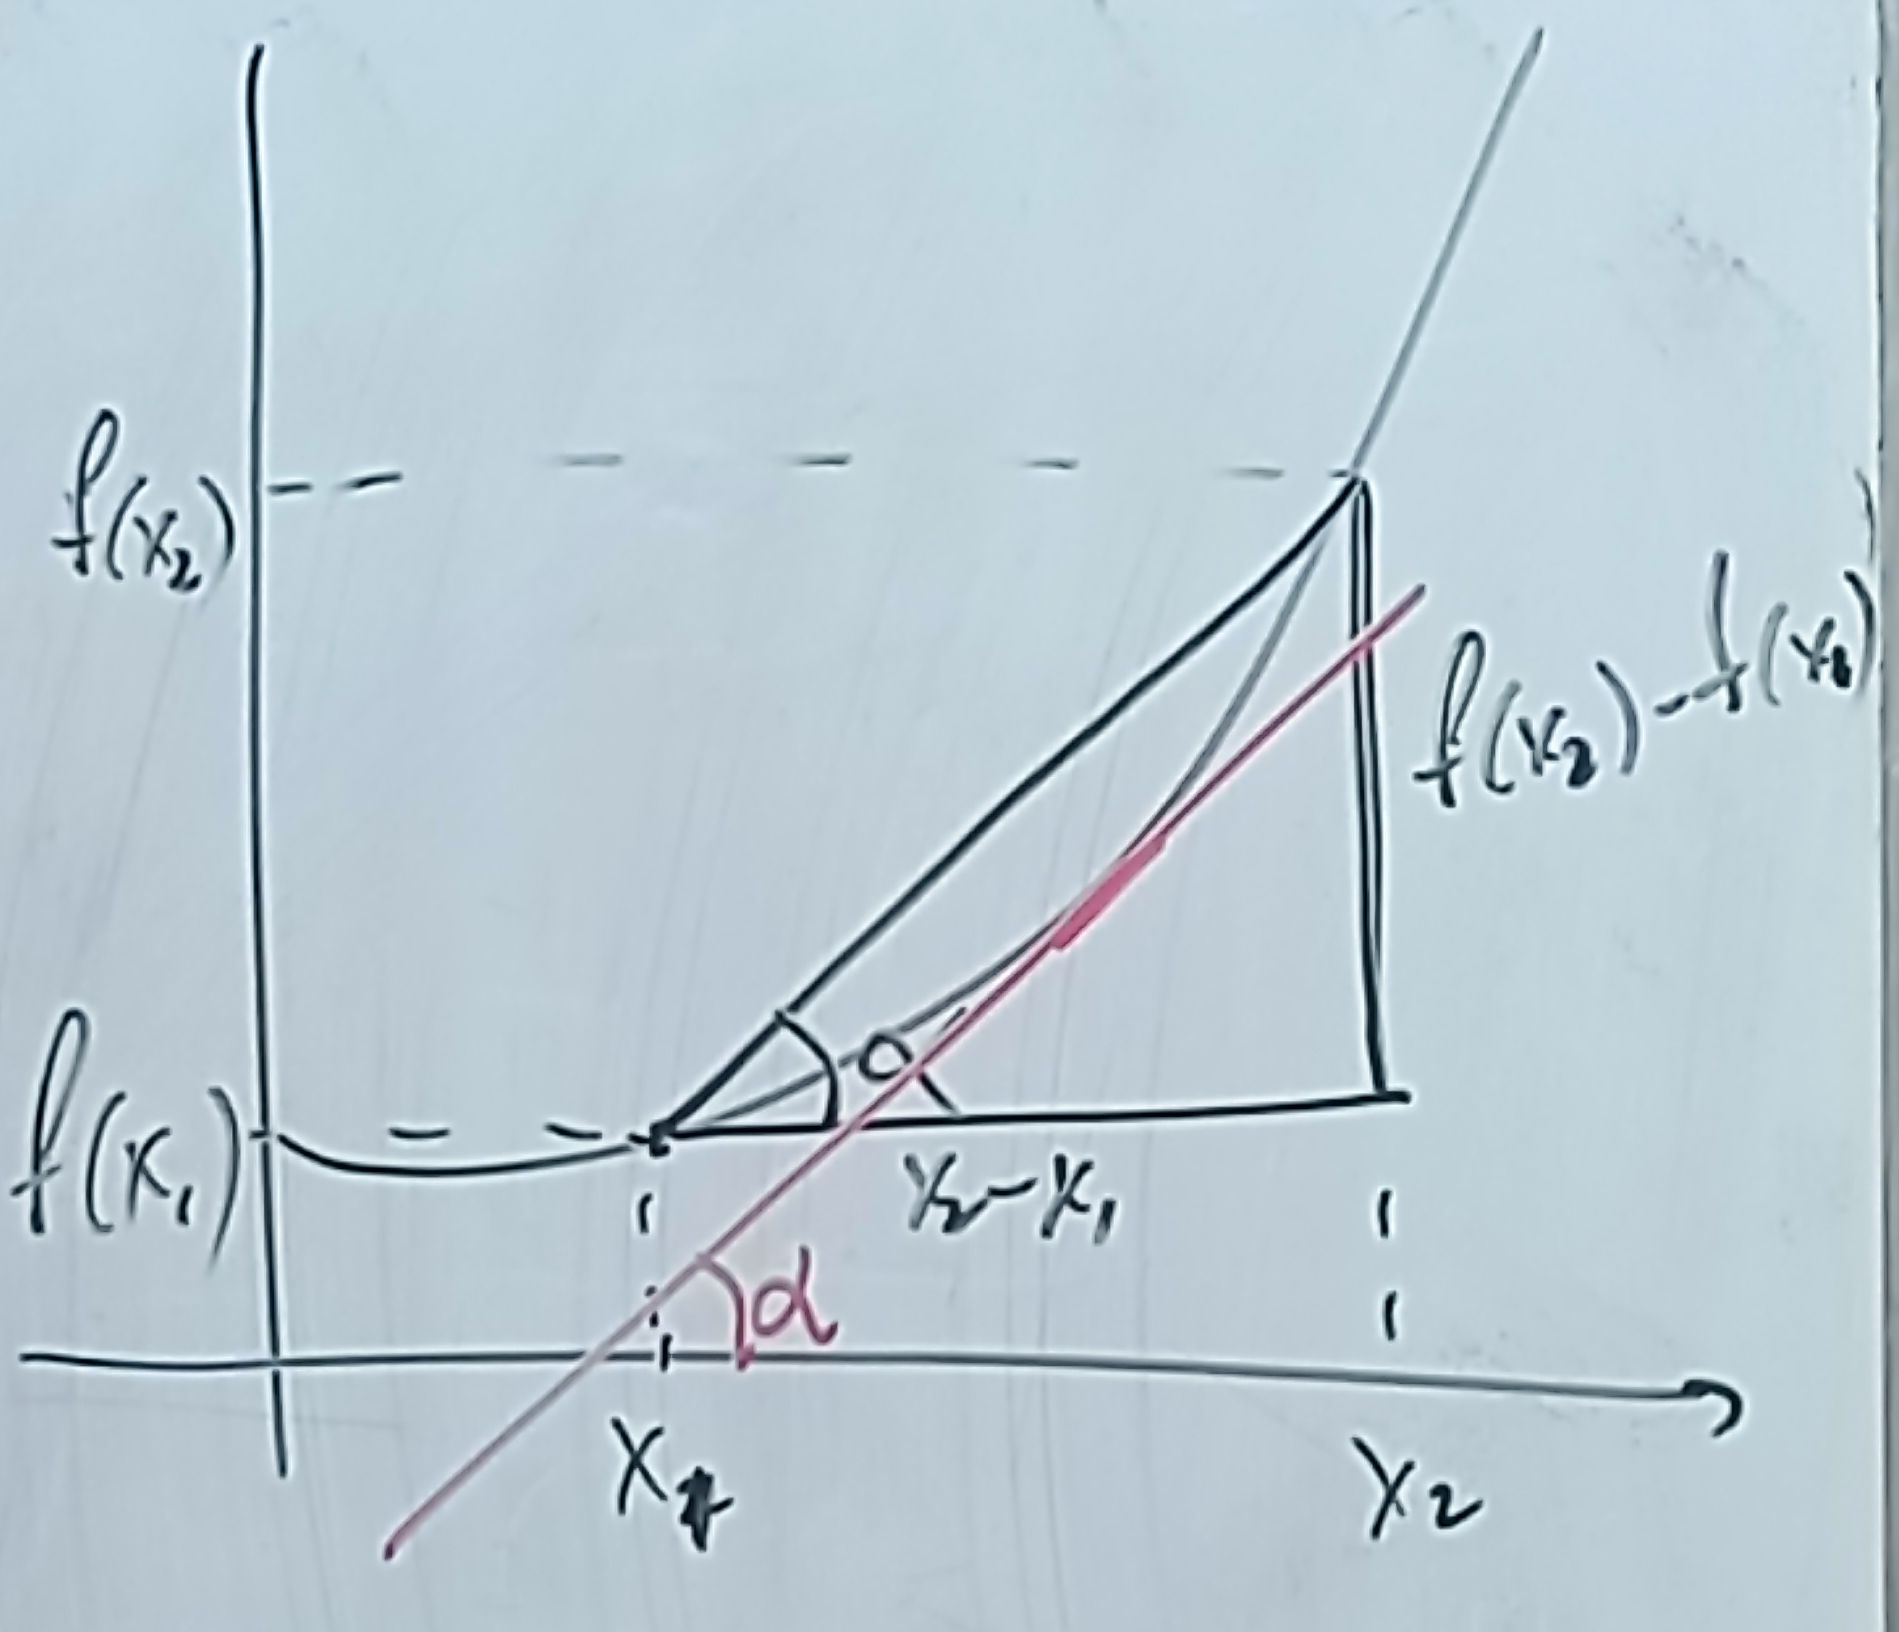 f(x₂)
f(x₂)-f(x₁)
α
f(x₁)
x₂-x₁
α
x₁
x₂